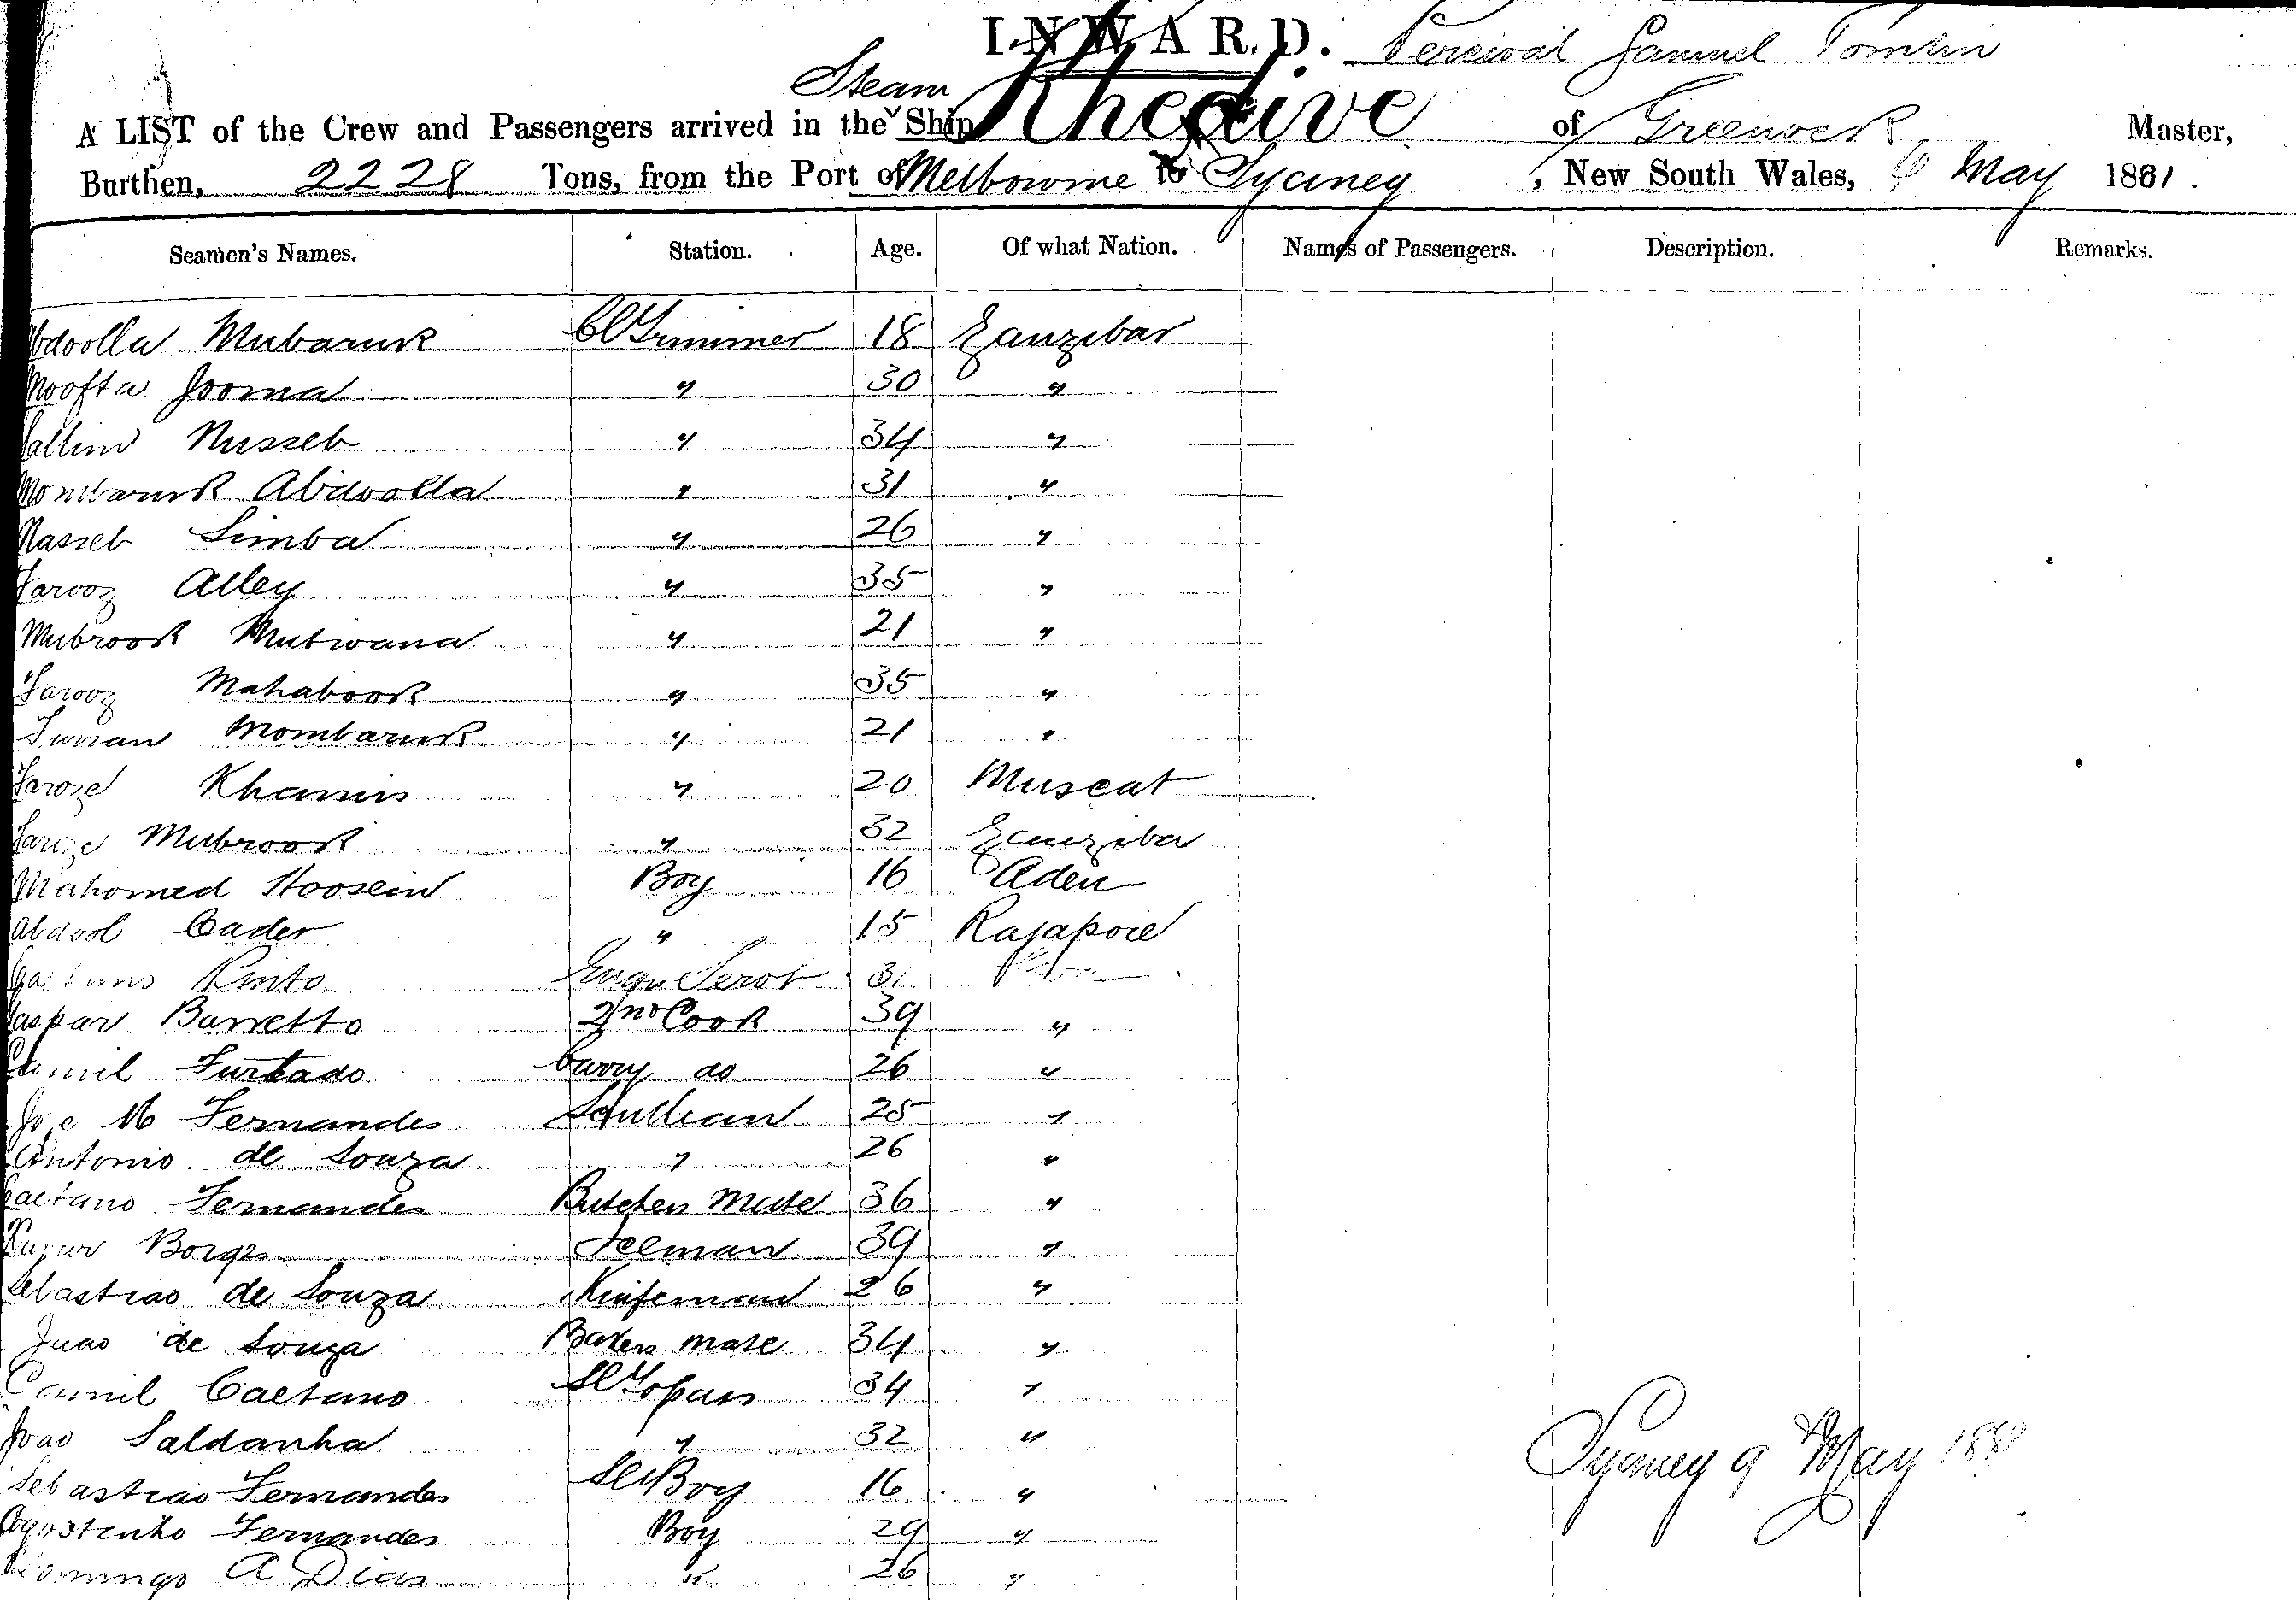 INWARD. Percival Samuel Tomlin
Steam
A LIST of the Crew and Passengers arrived in the Ship Khedive of Greenock Master,
Burthen, 2228 Tons, from the Port of Melbourne to Sydney, New South Wales, May 1881.
Seamen's Names. Station. Age. Of what Nation. Names of Passengers. Description. Remarks.
Abdoolla Mubaruk Cl Trimmer 18 Zanzibar
Moofta Jooma " 30 "
Sallim Nusseb " 34 "
Mombaruk Abdoolla " 31 "
Nasseb Simba " 26 "
Farooz Alley " 35 "
Mubrook Mutwana " 21 "
Farooz Mahabook " 35 "
Mombaruk " 21 "
Faroze Khamis " 20 Muscat
Mubrook " 32 Zanzibar
Mahomed Hoosein Boy 16 Aden
Abdool Cader " 15 Rajapore
Pinto 31
Gaspar Barretto 2nd Cook 39 "
Camil Furtado Curry do 26 "
Jose M Fernandes Scullean 25 "
Antonio de Souza " 26 "
Caetano Fernandes Butchers Mate 36 "
Borges 39 "
Sebastiao de Souza Knifeman 26 "
Juao de Souza Bakers mate 34 "
Camil Caetano Sl Topass 34 "
Joao Saldanha " 32 "
Sebastiao Fernandes Sl Boy 16 "
Agostinho Fernandes Boy 29 "
Domingo A Dias " 26 "
Sydney 9 May 188